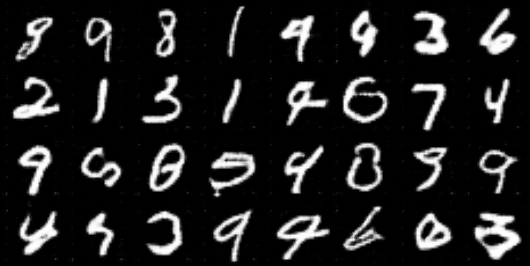 8 9 8 1 9 9 3 6
2 1 3 1 4 6 7 4
9 5 0 5 4 8 9 9
4 4 3 9 4 6 0 3